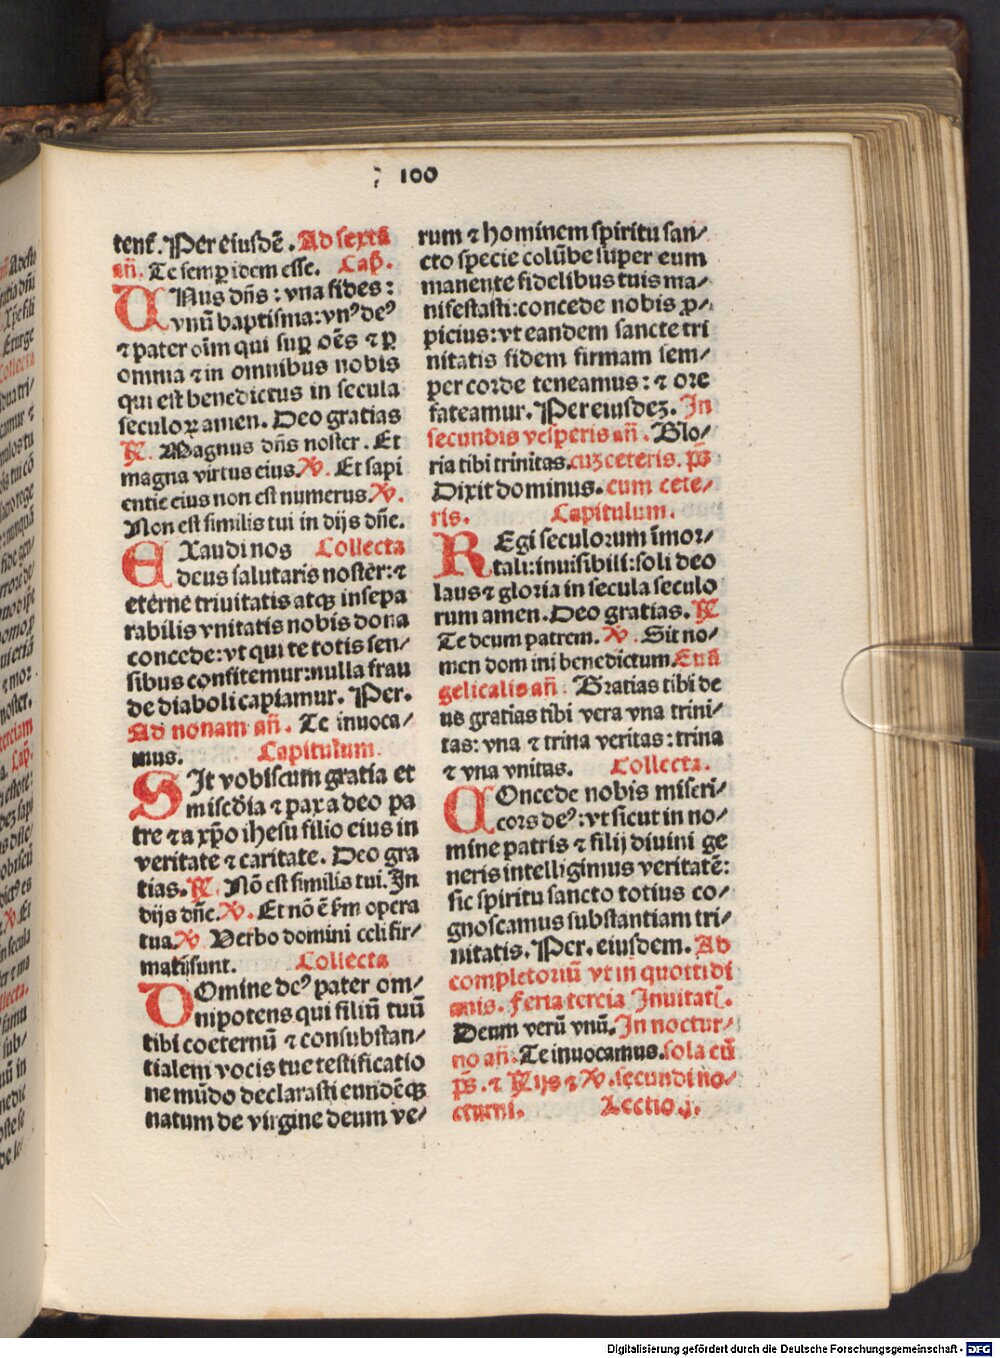 100
tent̄. Per eiusdē. Ad sextā
añ. Te semꝑ idem esse. Cap̄.
VNus dñs: vna fides:
vnū baptisma: vnꝰ deꝰ
⁊ pater oīm qui suꝑ oēs ⁊ ꝑ
omnia ⁊ in omnibus nobis
qui est benedictus in secula
seculoꝝ amen. Deo gratias
℟. Magnus dñs noster. Et
magna virtus eius. ℣. Et sapi
entie eius non est numerus. ℣.
Non est similis tui in dijs dñe.
EXaudi nos Collecta
deus salutaris noster: ⁊
eterne triuitatis atqꝫ insepa
rabilis vnitatis nobis dona
concede: vt qui te totis sen/
sibus confitemur: nulla frau
de diaboli capiamur. Per.
Ad nonam añ. Te inuoca/
mus. Capitulum.
SIt vobiscum gratia et
misc̄dia ⁊ pax a deo pa
tre ⁊ a xp̄o ihesu filio eius in
veritate ⁊ caritate. Deo gra
tias. ℟. Nō est similis tui. In
dijs dñe. ℣. Et nō ē ẜm opera
tua. ℣ Verbo domini celi fir/
mati sunt. Collecta
DOmine deꝰ pater om/
nipotens qui filiū tuū
tibi coeternū ⁊ consubstan/
tialem vocis tue testificatio
ne mūdo declarasti eundēqꝫ
natum de virgine deum ve/
rum ⁊ hominem spiritu san/
cto specie colūbe super eum
manente fidelibus tuis ma/
nifestasti: concede nobis ꝓ/
picius: vt eandem sancte tri
nitatis fidem firmam sem/
per corde teneamus: ⁊ ore
fateamur. Per eiusdeꝫ. In
secundis vesperis añ. Glo/
ria tibi trinitas. cuꝫ ceteris. p̄s
Dixit dominus. cum cete/
ris. Capitulum.
REgi seculorum īmor/
tali: inuisibili: soli deo
laus ⁊ gloria in secula seculo
rum amen. Deo gratias. ℟
Te deum patrem. ℣. Sit no/
men domini benedictum. Euā
gelicalis añ. Gratias tibi de
us gratias tibi vera vna trini/
tas: vna ⁊ trina veritas: trina
⁊ vna vnitas. Collecta.
COncede nobis miseri/
cors deꝰ: vt sicut in no/
mine patris ⁊ filij diuini ge
neris intelligimus veritatē:
sic spiritu sancto totius co/
gnoscamus substantiam tri/
nitatis. Per. eiusdem. Ad
completoriū vt in quottidi
anis. Feria tercia Inuitat̄.
Deum verū vnū. In noctur/
no añ. Te inuocamus. sola cū
p̄s. ⁊ ℟ijs ⁊ ℣. secundi no/
cturni. Lectio .j.
Digitalisierung gefördert durch die Deutsche Forschungsgemeinschaft - DFG